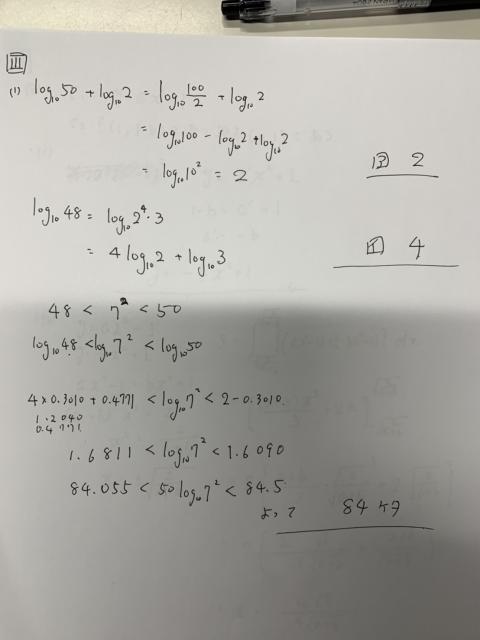 III
(1) log₁₀50 + log₁₀2 = log₁₀ 100/2 + log₁₀2
= log₁₀100 - log₁₀2 + log₁₀2
= log₁₀10² = 2
2
log₁₀48 = log₁₀2⁴・3
= 4log₁₀2 + log₁₀3
4
48 < 7² < 50
log₁₀48 < log₁₀7² < log₁₀50
4×0.3010 + 0.4771 < log₁₀7² < 2 - 0.3010
1.2040
0.4771
1.6811 < log₁₀7² < 1.6090
84.055 < 50log₁₀7² < 84.5
よって 84ケタ